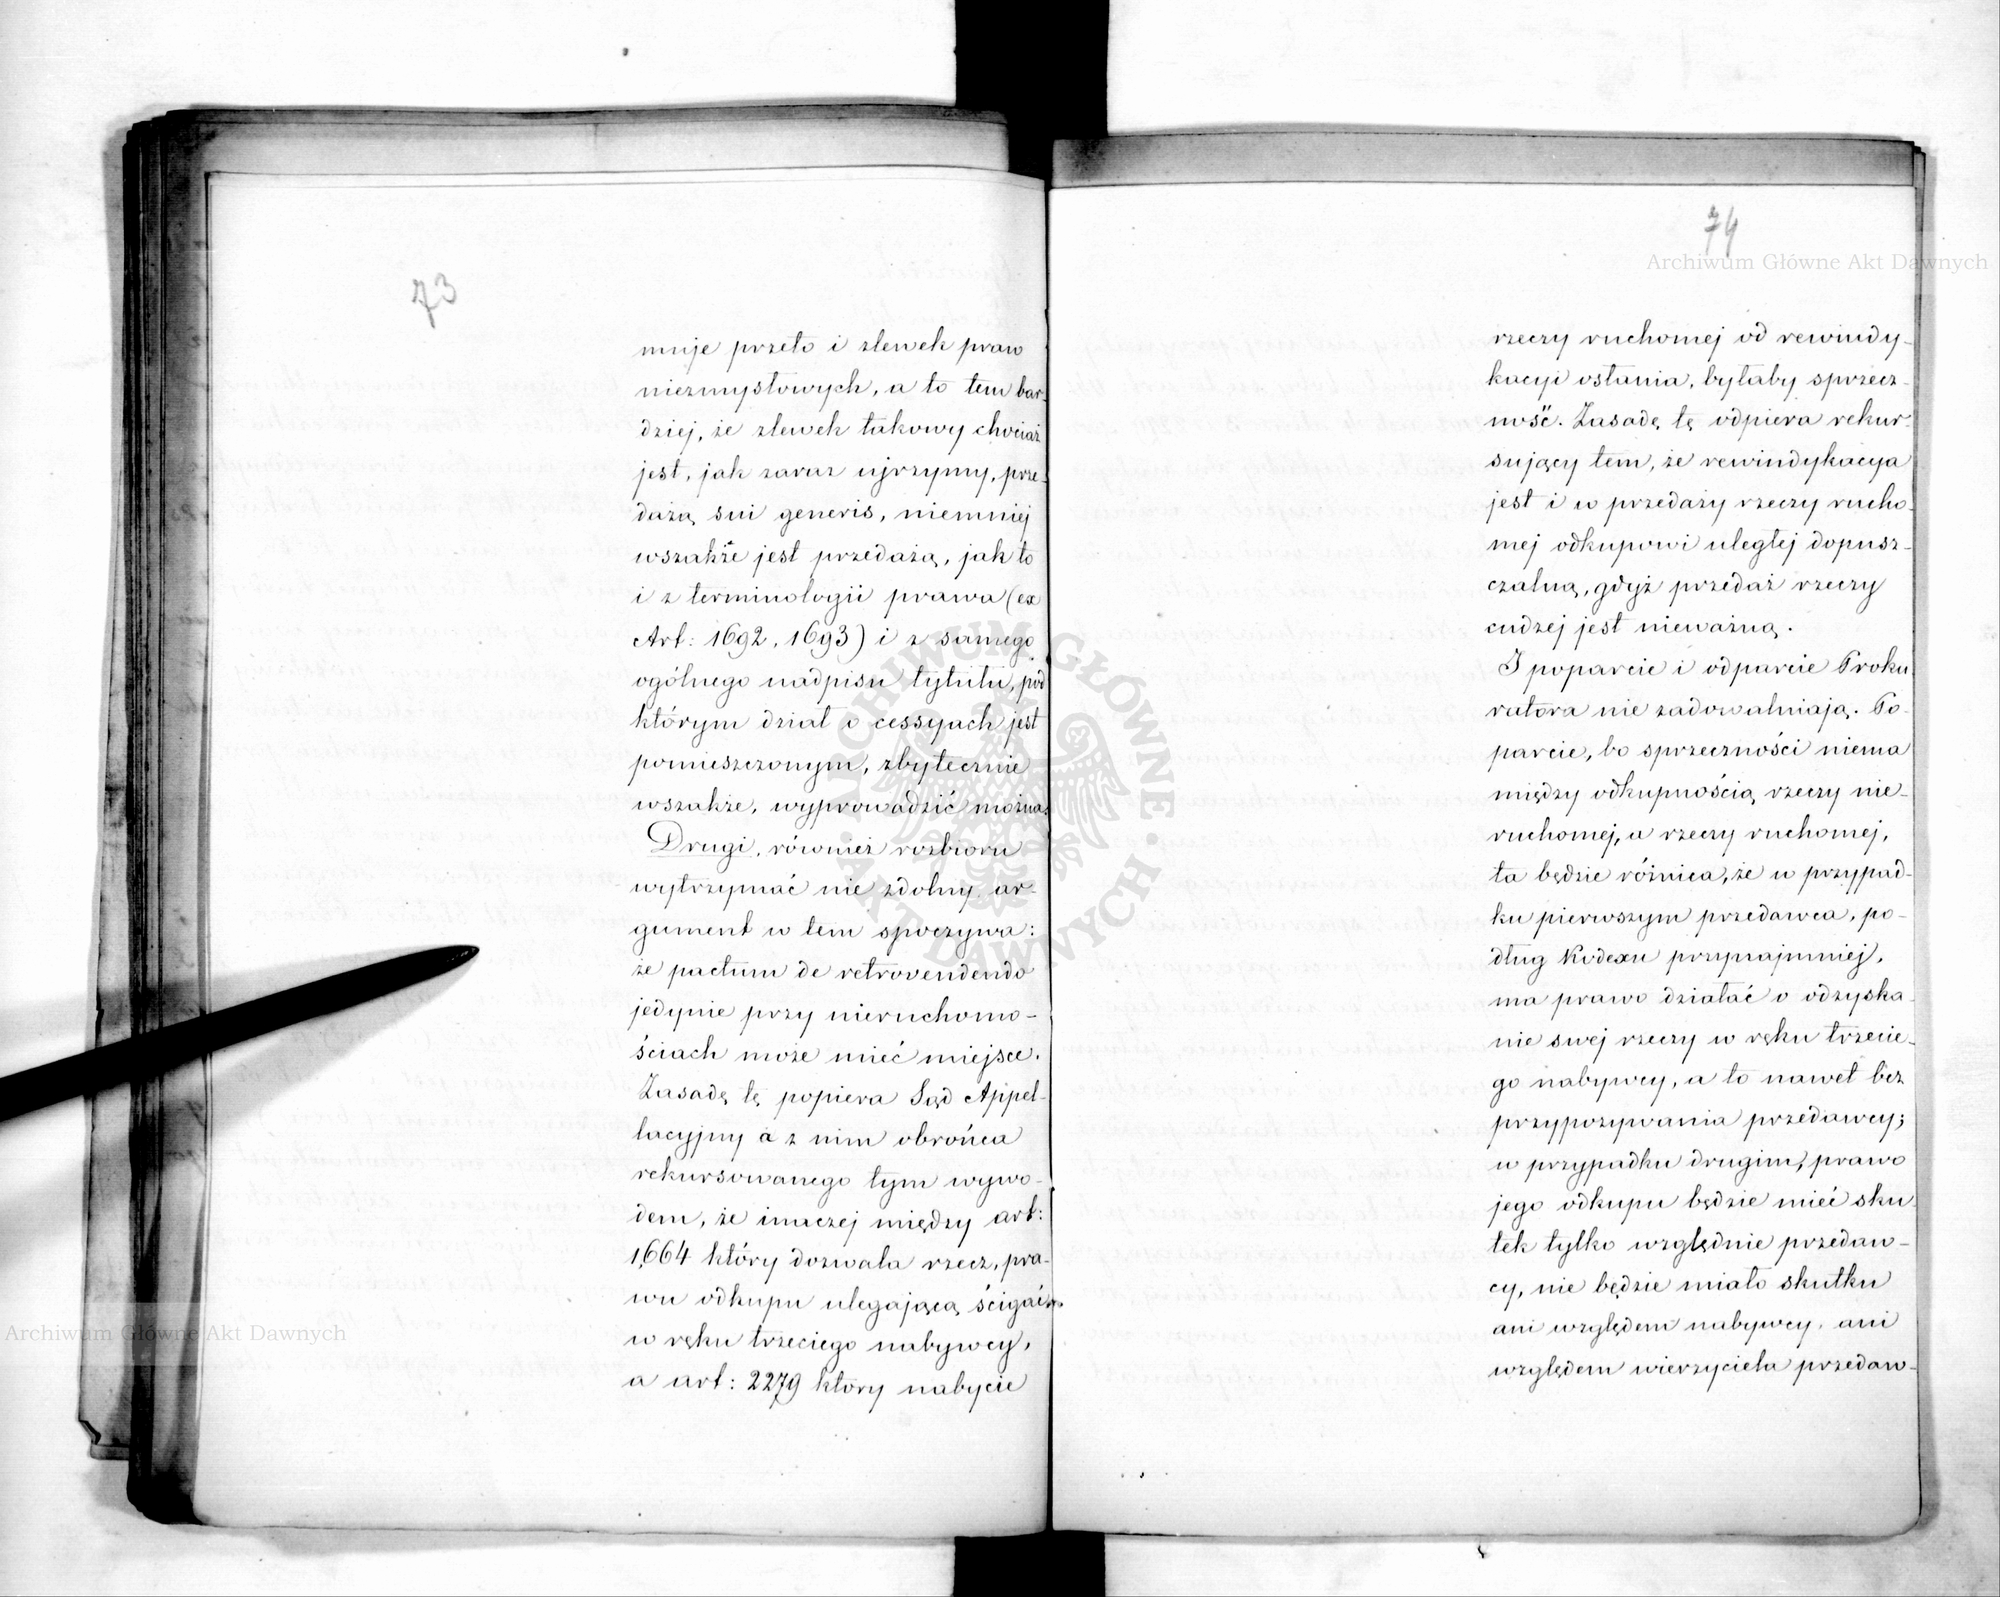 73
muje przeto i zlewek praw
niezmysłowych, a to tem bar-
dziej, że zlewek takowy chociaż
jest, jak zaraz ujrzymy, prze-
dażą sui generis, niemniej
wszakże jest przedażą, jak to
i z terminologii prawa (ex
Art: 1692, 1693) i z samego
ogólnego nadpisu tytułu, pod
którym dział o cessyach jest
pomieszczonym, zbytecznie
wszakże, wyprowadzić można.
Drugi, również rozbioru
wytrzymać nie zdolny ar-
gument w tem spoczywa:
że pactum de retrovendendo
jedynie przy nieruchomo-
ściach może mieć miejsce.
Zasadę tę popiera Sąd Appel-
lacyjny a z nim obrońca
rekursowanego tym wywo-
dem, że inaczej między art:
1664 który dozwala rzecz, pra-
wu odkupu ulegającą ścigać
w ręku trzeciego nabywcy,
a art: 2279 który nabycie
74
rzeczy ruchomej od rewindy-
kacyi osłania, byłaby sprzecz-
ność. Zasadę tę odpiera rekur-
sujący tem, że rewindykacya
jest i w przedaży rzeczy rucho-
mej odkupowi uległej dopusz-
czalną, gdyż przedaż rzeczy
cudzej jest nieważną.
I poparcie i odparcie Proku
ratora nie zadowalniają. Po-
parcie, bo sprzeczności niema
między odkupnością rzeczy nie-
ruchomej, a rzeczy ruchomej,
ta będzie różnica, że w przypad-
ku pierwszym przedawca, po-
dług Kodexu przynajmniej,
ma prawo działać o odzyska-
nie swej rzeczy w ręku trzecie-
go nabywcy, a to nawet bez
przypozywania przedawcy;
w przypadku drugim, prawo
jego odkupu będzie mieć sku
tek tylko względnie przedaw-
cy, nie będzie miało skutku
ani względem nabywcy, ani
względem wierzyciela przedaw-
Archiwum Główne Akt Dawnych
Archiwum Główne Akt Dawnych
ARCHIWUM GŁÓWNE AKT DAWNYCH